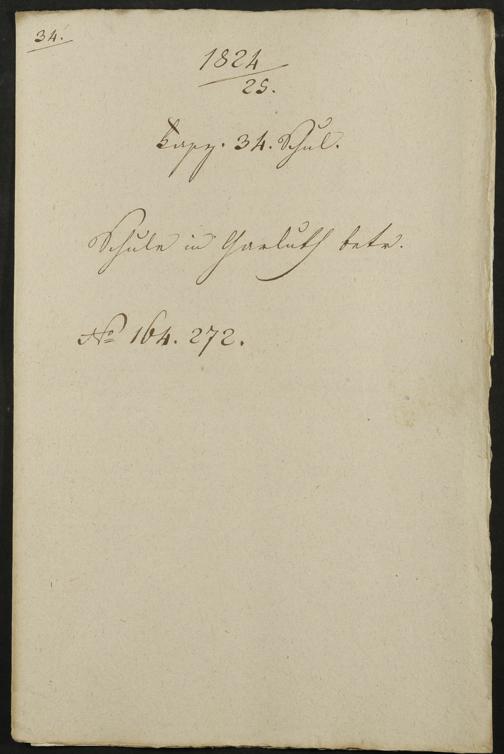 34.
1824
25.
Fasz. 34. Schul.
Schule in betr.
No 164. 272.